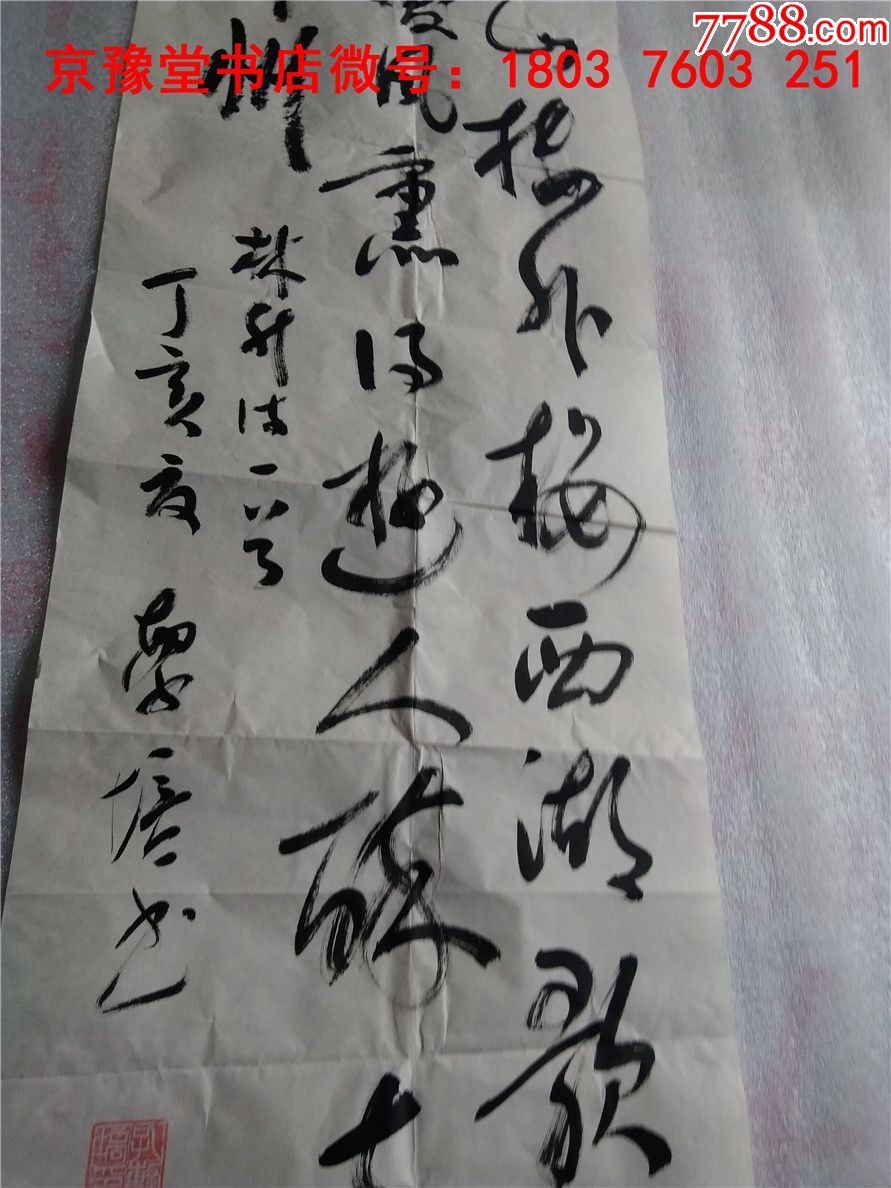 7788.com
京豫堂书店微号：1803 7603 251
山樓外樓西湖歌
暖風熏得遊人醉
州
林升诗一首
丁亥夏
书